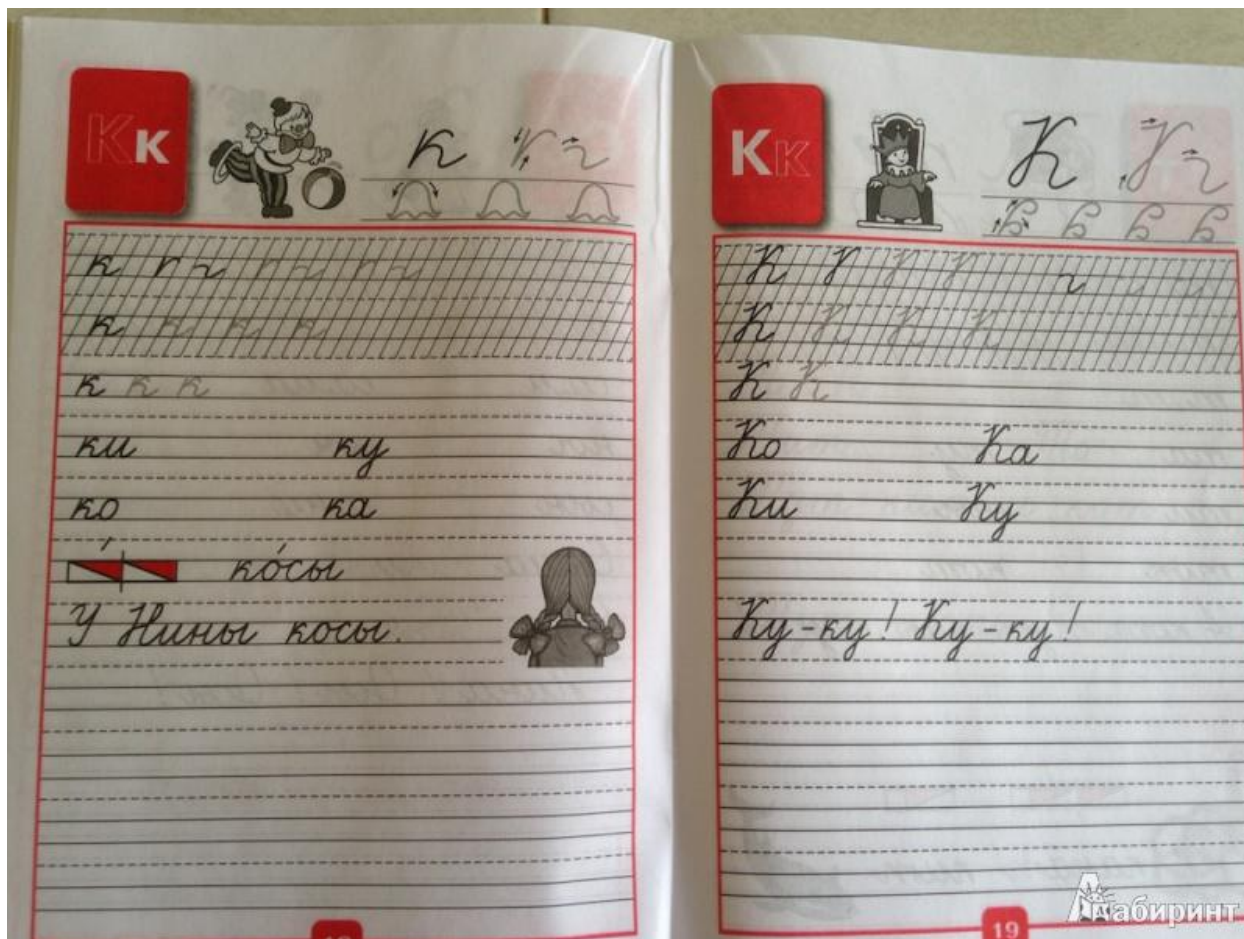 Кк
К
к г г г г г г
к к к к к
к к к
ки ку
ко ка
ко́сы
У Нины косы.
18
Кк
К
К К К К
К К
Ко Ка
Ки Ку
Ку-ку! Ку-ку!
19
Лабиринт